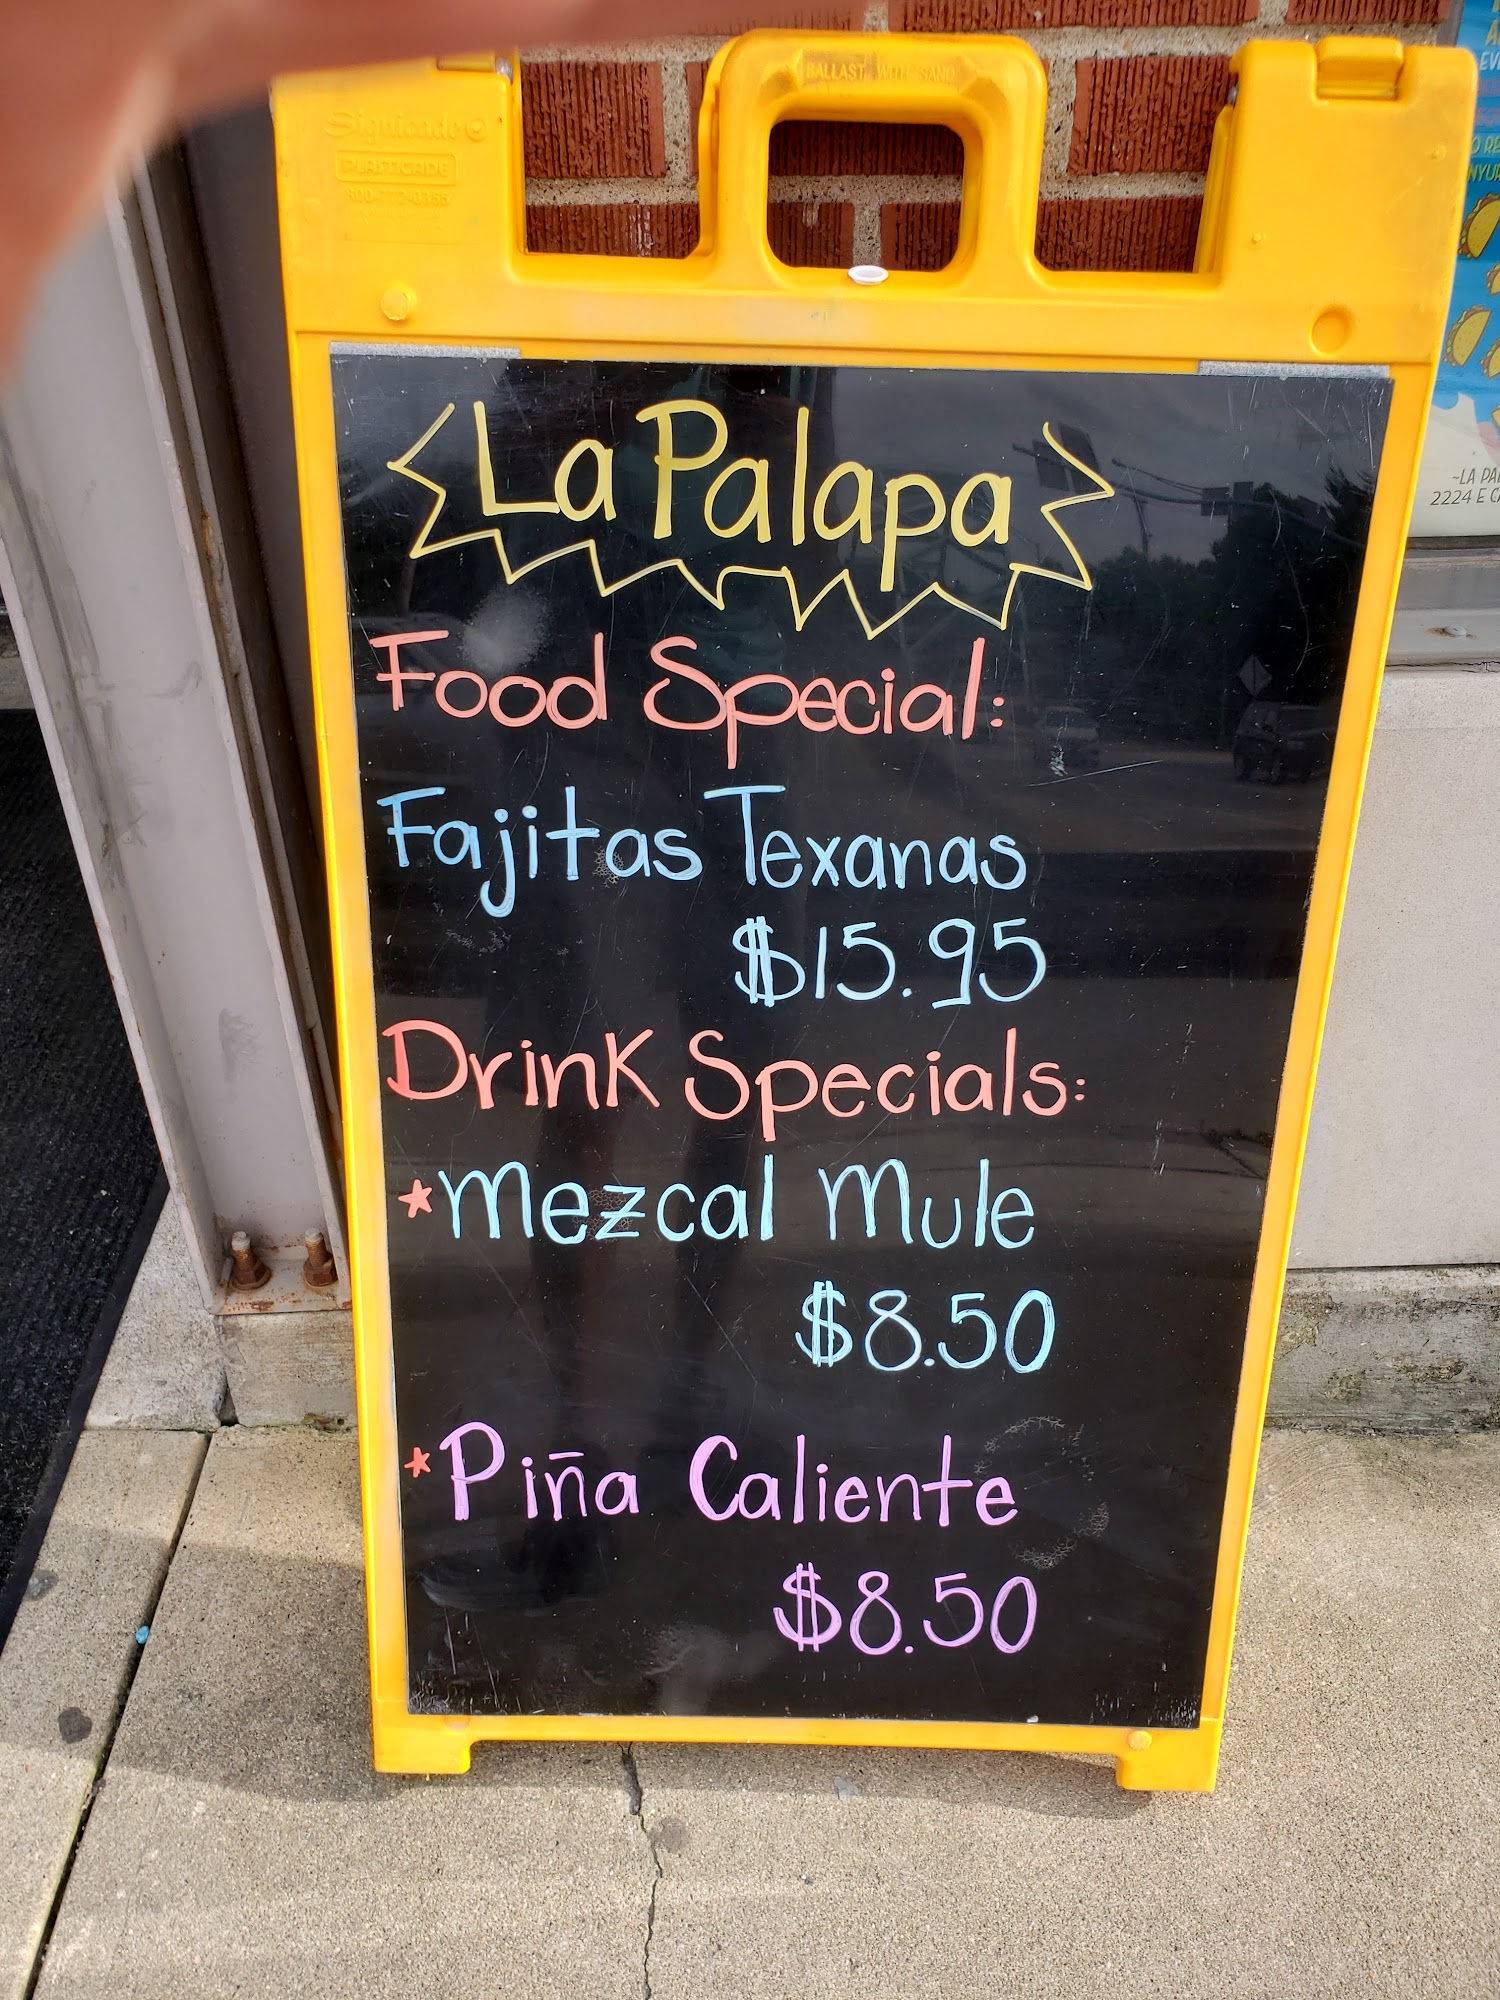 BALLAST WITH SAND
Signicade
PLASTICADE
800-772-0355
La Palapa
Food Special:
Fajitas Texanas
$15.95
Drink Specials:
*Mezcal Mule
$8.50
*Piña Caliente
$8.50
~LA PA
2224 E C